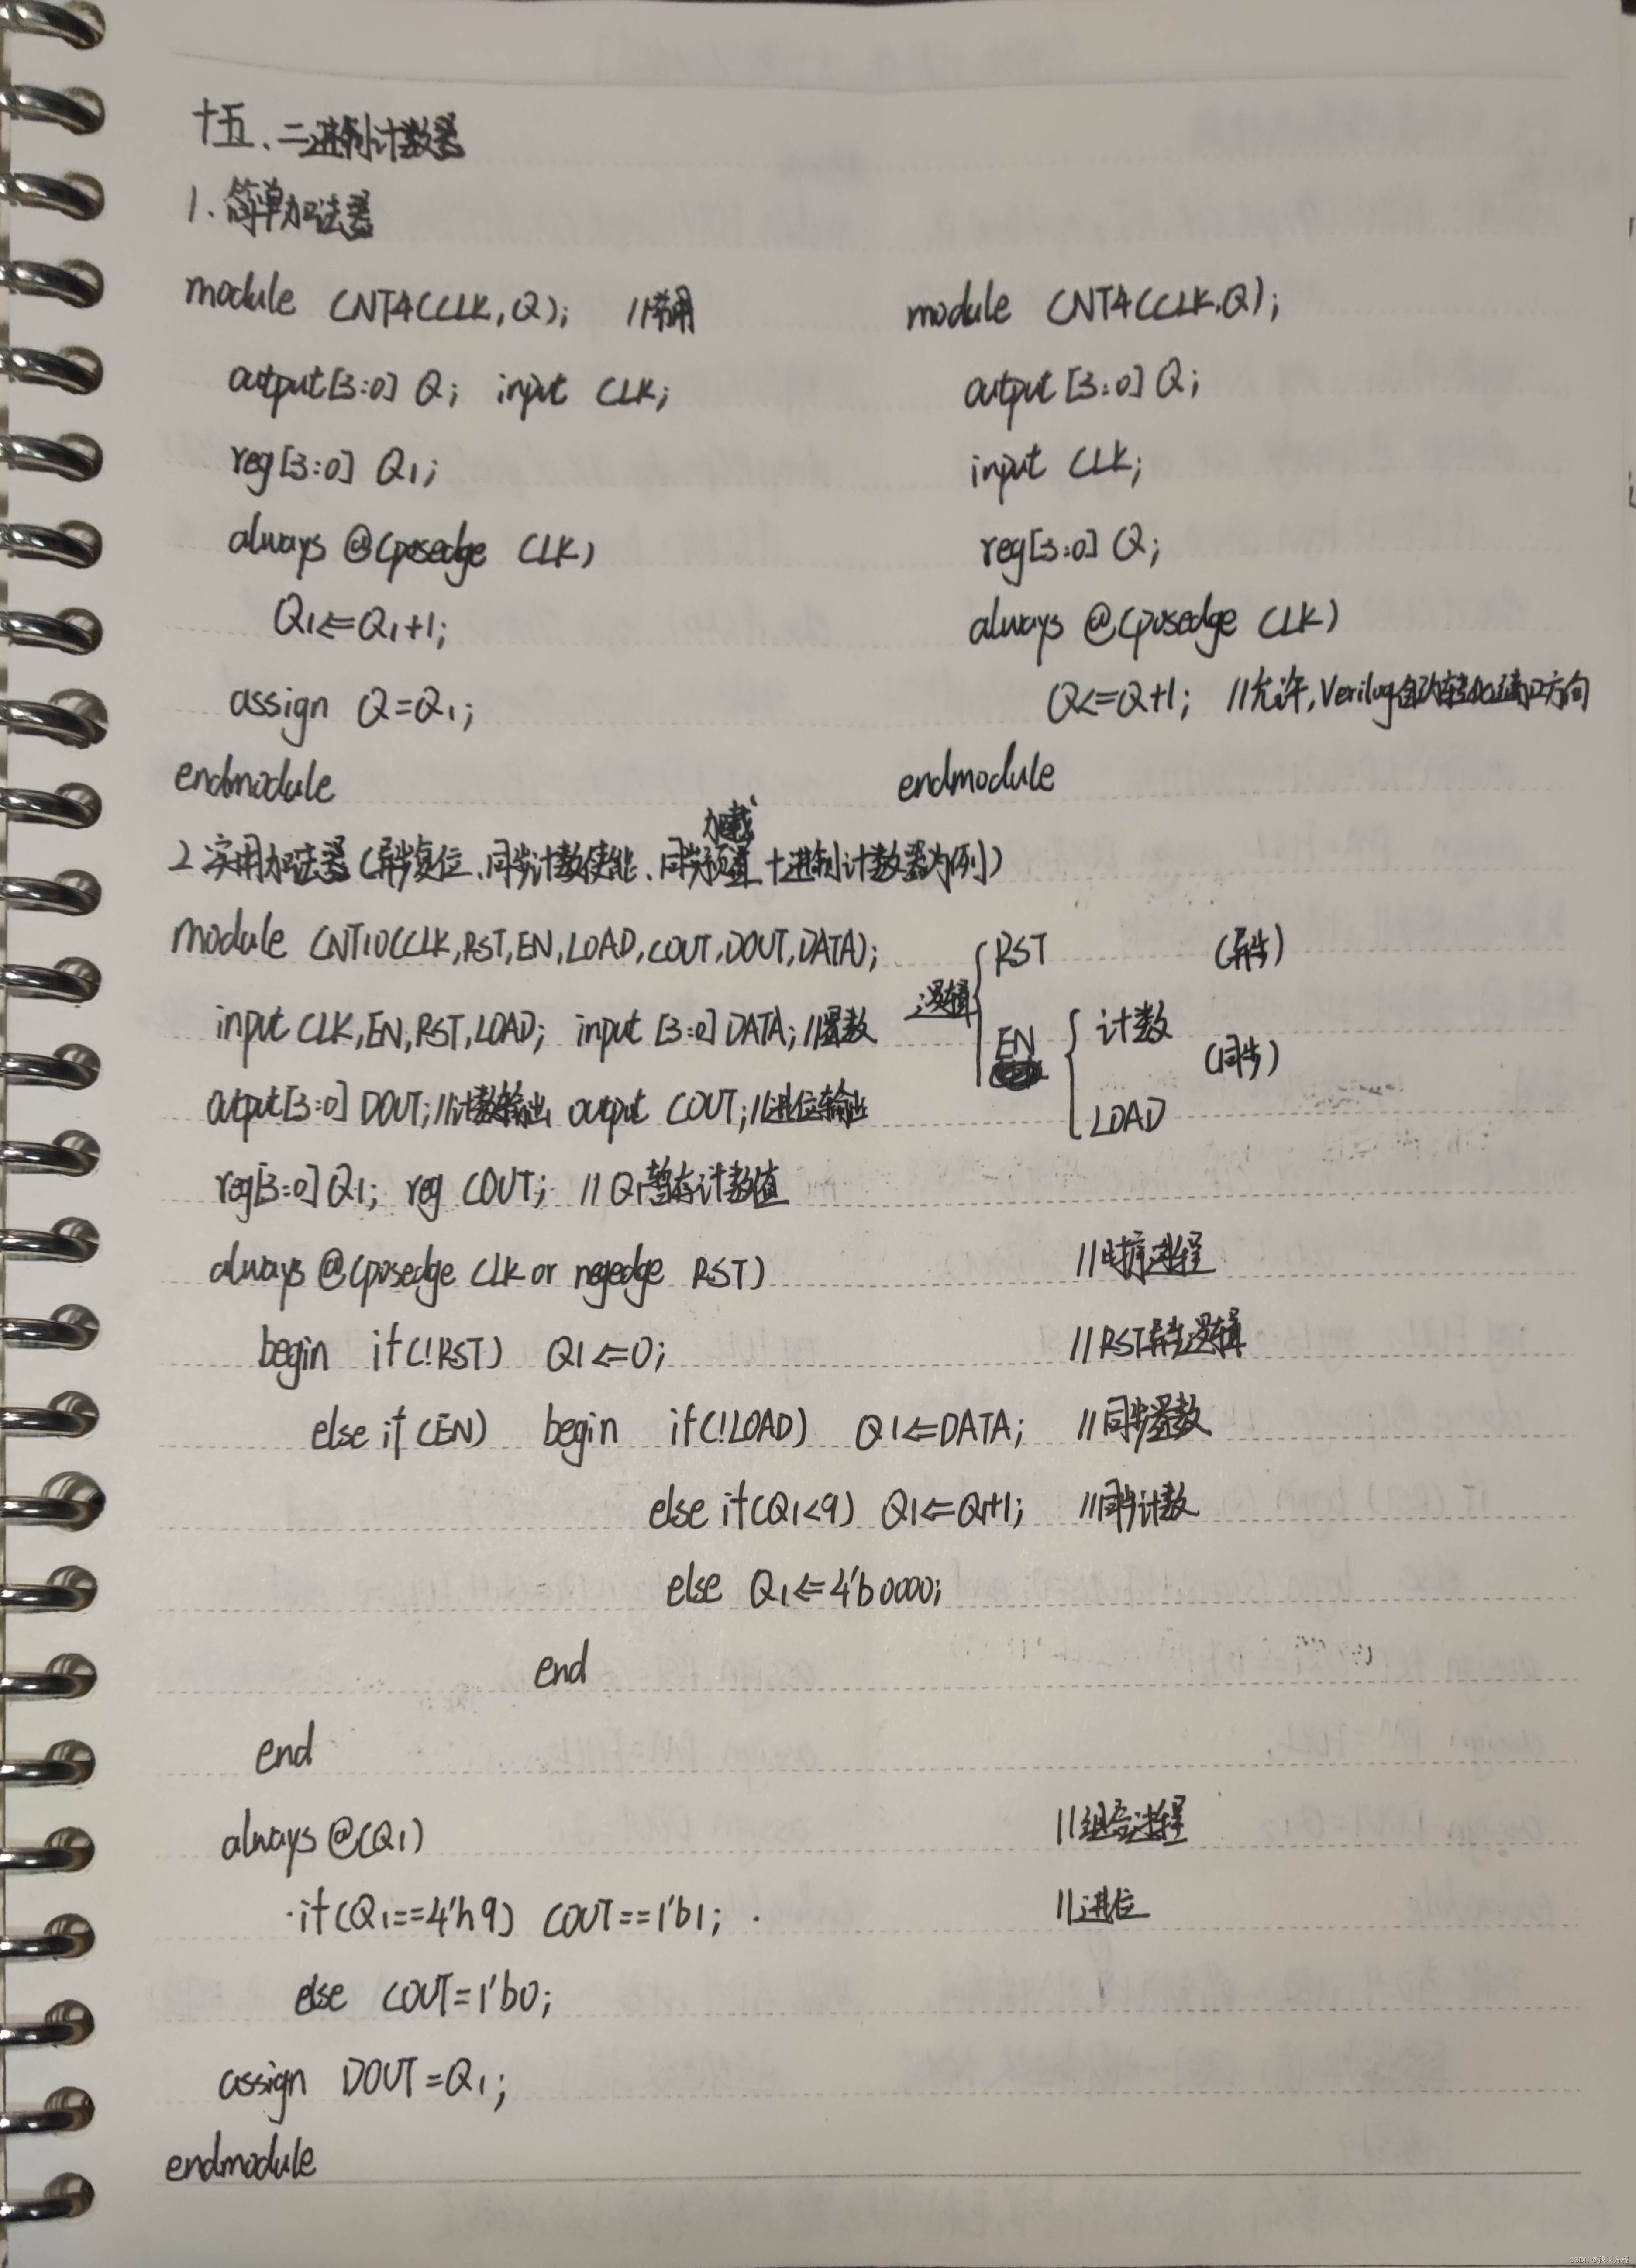 十五、二进制计数器
1、简单加法器
module CNT4(CLK,Q); //常用
output[3:0] Q; input CLK;
reg[3:0] Q1;
always @(posedge CLK)
Q1<=Q1+1;
assign Q=Q1;
endmodule
module CNT4(CLK,Q);
output[3:0] Q;
input CLK;
reg[3:0] Q;
always @(posedge CLK)
Q<=Q+1; //允许,Verilog自动转换端口方向
endmodule
加载
2、实用加法器(异步复位、同步计数使能、同步预置十进制计数器为例)
module CNT10(CLK,RST,EN,LOAD,COUT,DOUT,DATA);
input CLK,EN,RST,LOAD; input [3:0] DATA; //置数
output[3:0] DOUT; //计数输出 output COUT; //进位输出
reg[3:0] Q1; reg COUT; //Q1暂存计数值
逻辑
RST (异步)
EN
计数
(同步)
LOAD
always @(posedge CLK or negedge RST) //时序进程
begin if(!RST) Q1<=0; //RST异步逻辑
else if(EN) begin if(!LOAD) Q1<=DATA; //同步置数
else if(Q1<9) Q1<=Q1+1; //同步计数
else Q1<=4'b0000;
end
end
always @(Q1) //组合进程
if(Q1==4'h9) COUT==1'b1; //进位
else COUT=1'b0;
assign DOUT=Q1;
endmodule